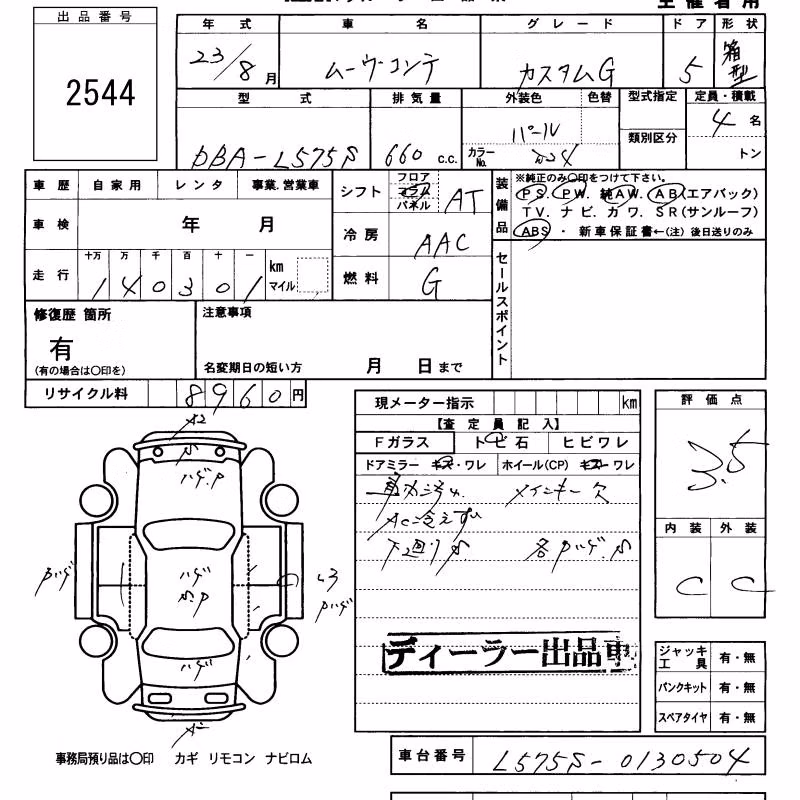 出品番号
2544
年式 車名 グレード ドア 形状
23/8月 ムーヴコンテ カスタムG 5 箱型
型式 排気量 外装色 色替 型式指定 定員・積載
DBA-L575S 660 C.C. パール 類別区分 4名
カラーNo. トン
車歴 自家用 レンタ 事業.営業車 シフト フロア コラム パネル AT 装備品 ※純正のみ〇印をつけて下さい。
PS. PW. 純AW. AB(エアバッグ)
TV. ナビ. カワ. SR(サンルーフ)
ABS ・ 新車保証書←(注) 後日送りのみ
車検 年 月 冷房 AAC
走行 十万 万 千 百 十 一 km マイル 燃料 G セールスポイント
1 4 0 3 0 1
修復歴 箇所 注意事項
有
(有の場合は〇印を) 名変期日の短い方 月 日まで
リサイクル料 8960円
現メーター指示 km 評価点
【査定員記入】 3.5
Fガラス トビ石 ヒビワレ
ドアミラー キズ・ワレ ホイール(CP) キズ・ワレ
メインキー欠
AC冷えず
下廻りS 各Pハゲ.S
内装 外装
C C
A2
S
ハゲ.P
Pハゲ
ハゲ
S.P
Pハゲ
ハゲ
ディーラー出品車
ジャッキ工具 有・無
パンクキット 有・無
スペアタイヤ 有・無
事務局預り品は〇印 カギ リモコン ナビロム
車台番号 L575S-0130504